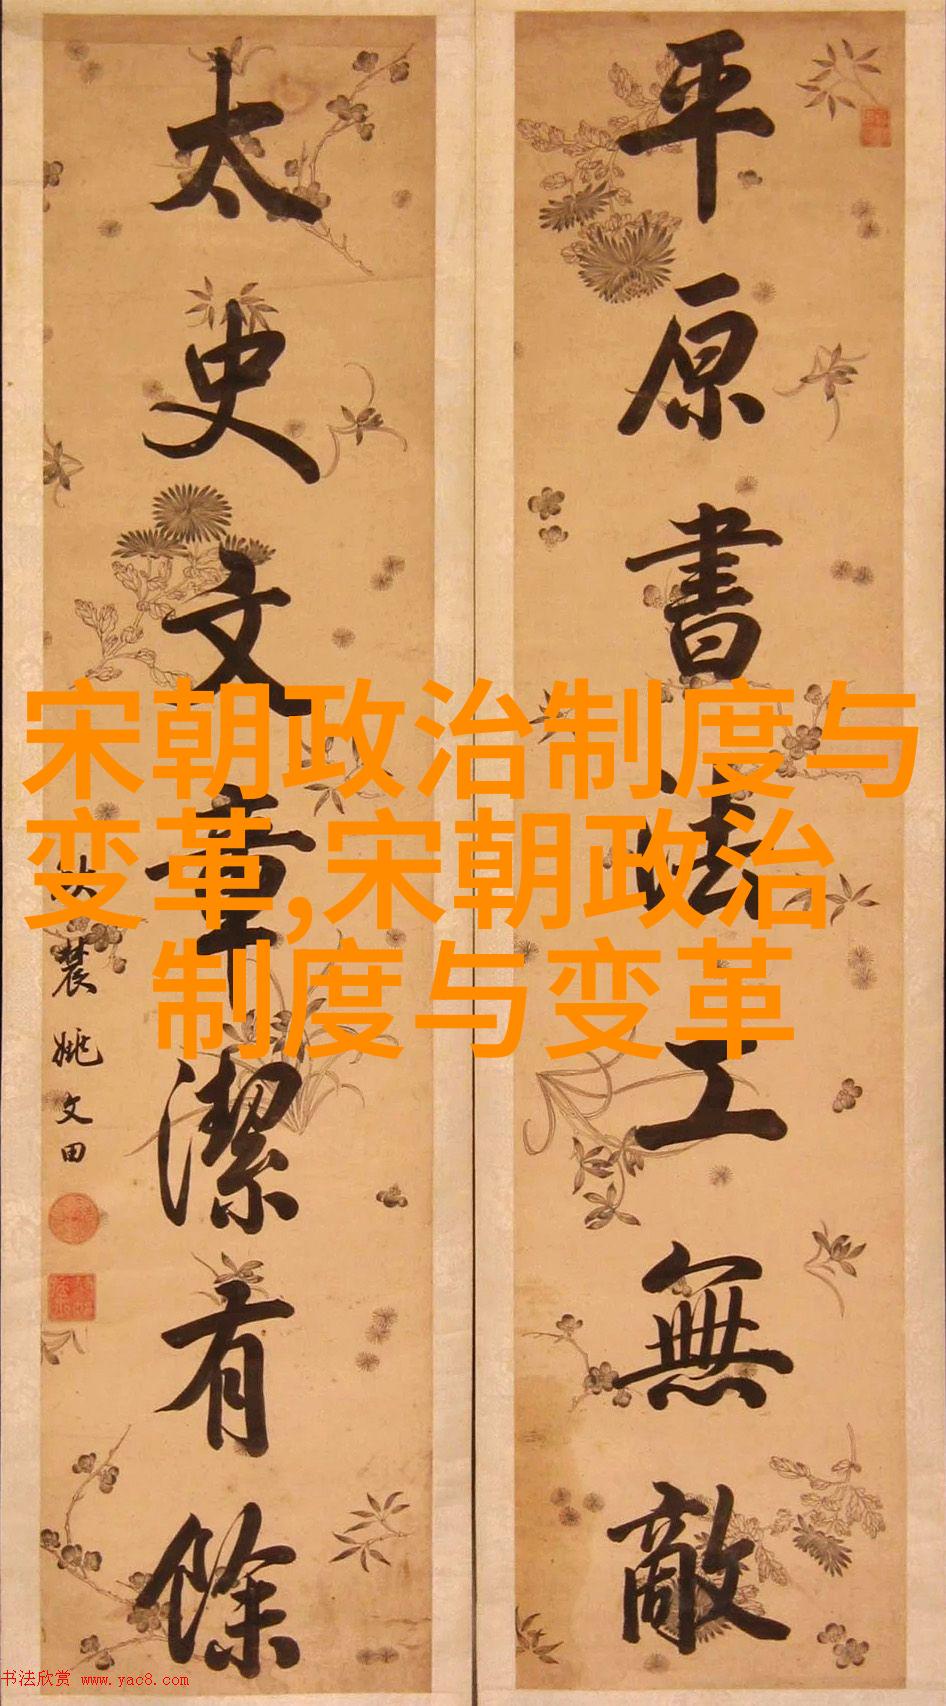 平原書法工無敵
太史文章潔有餘
農姚文田
宋朝政治制度与
变革,宋朝政治
制度与变革
书法欣赏 www.yac8.com